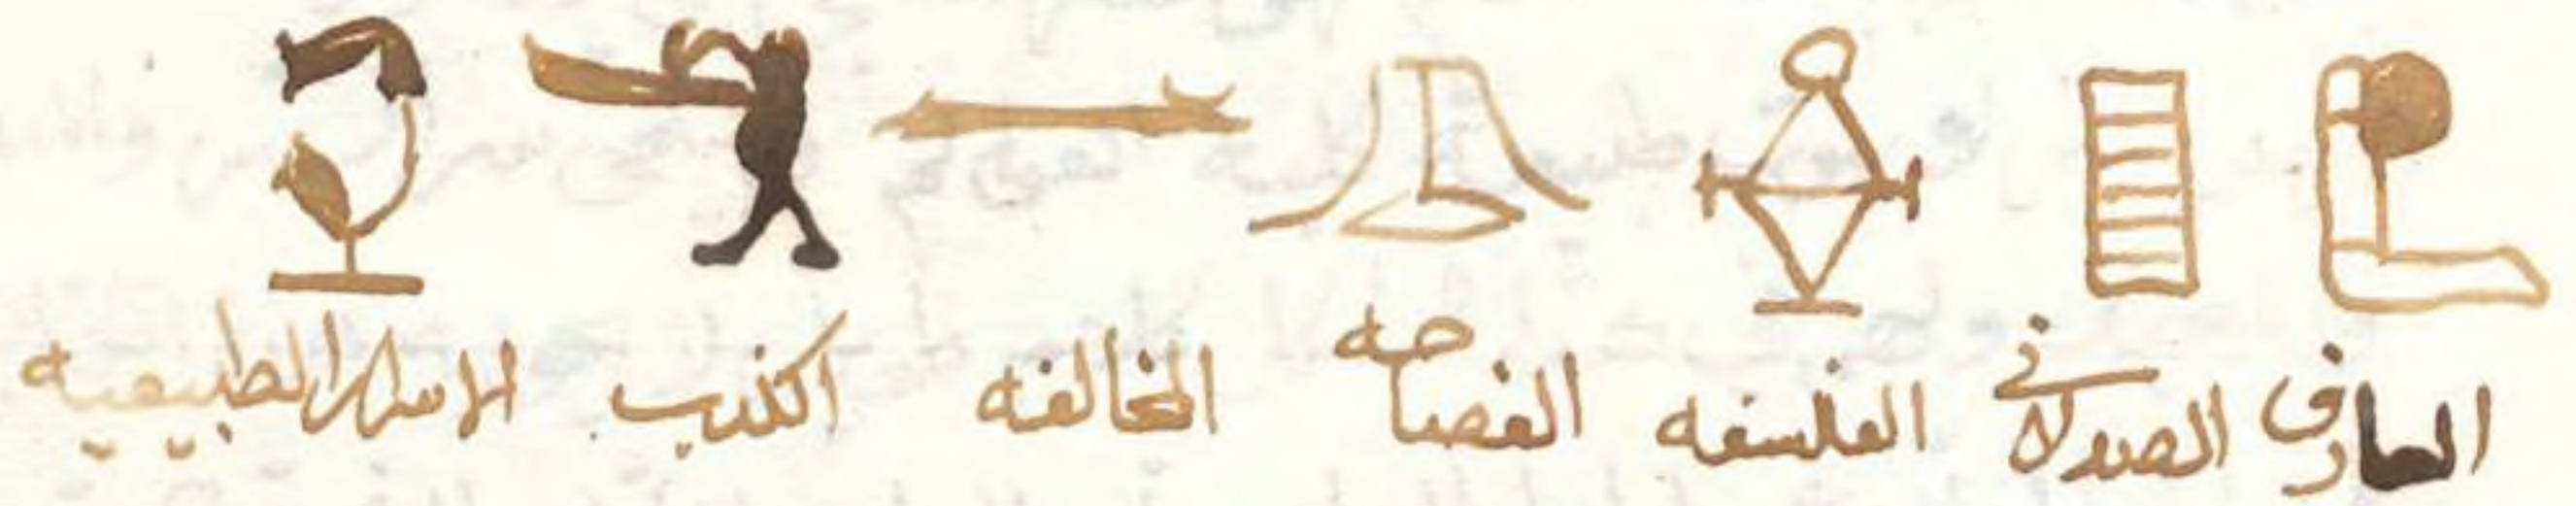 العارف الصيدلاني الفلسفه الفصاحه المخالفه الكذب الاسرار الطبيعيه